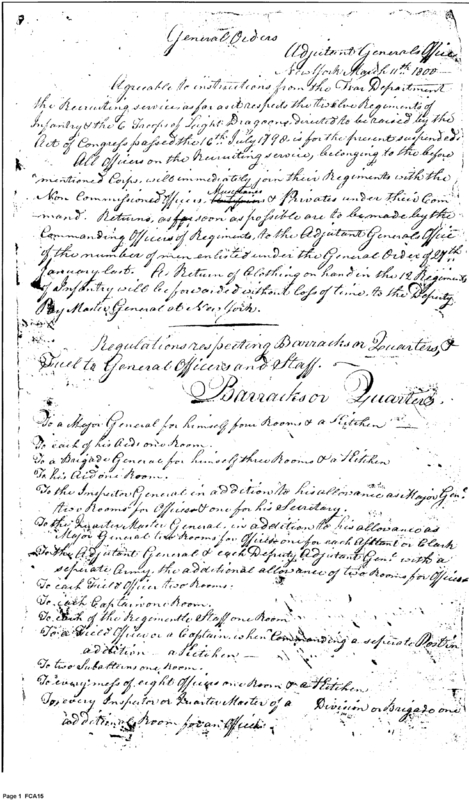 General Orders
Adjutant Generals Office
New York March 11th 1800
Agreable to instructions from the War Department
the Recruiting service as far as it respects the twelve Regiments of
Infantry & the 6 Troops of Light Dragoons directed to be raised by the
Act of Congress passed the 16th July 1798, is for the present suspended
All Officers on the Recruiting service, belonging to the before
mentioned Corps, will immediately join their Regiments with the
Non Commissioned Officers, Musicians & Privates under their Com
mand. Returns, as soon as possible are to be made by the
Commanding Officers of Regiments, to the Adjutant Generals Office
of the number of men enlisted under the General Order of 27th
January last. A Return of Clothing on hand in the 12 Regiments
of Infantry will be forwarded without loss of time, to the Deputy
Pay Master General at New York.
Regulations respecting Barracks or Quarters, &
Fuel to General Officers and Staff.
Barracks or Quarters.
To a Major General for himself four Rooms & a Kitchen
To each of his Aids one Room.
To a Brigade General for himself three Rooms & a Kitchen
To his Aid one Room.
To the Inspector General in addition to his allowance as Major Genl
two Rooms for Office & one for his Secretary.
To the Quarter Master General, in addition to his allowance as
Major General two Rooms for Office one for each Assistant or Clark
To the Adjutant General & each Deputy Adjutant Genl with a
seperate Army the additional allowance of two Rooms for Office
To each Field Officer two Rooms.
To each Captain one Room.
To each of the Regimental Staff one Room
To a Field Officer or a Captain when Commanding a seperate Post in
addition a Kitchen
To two Subalterns one Room.
To every mess of eight Officers one Room & a Kitchen
To every Inspector or Quarter Master of a Division or Brigade one
additional Room for an Office.
Page 1 FCA15